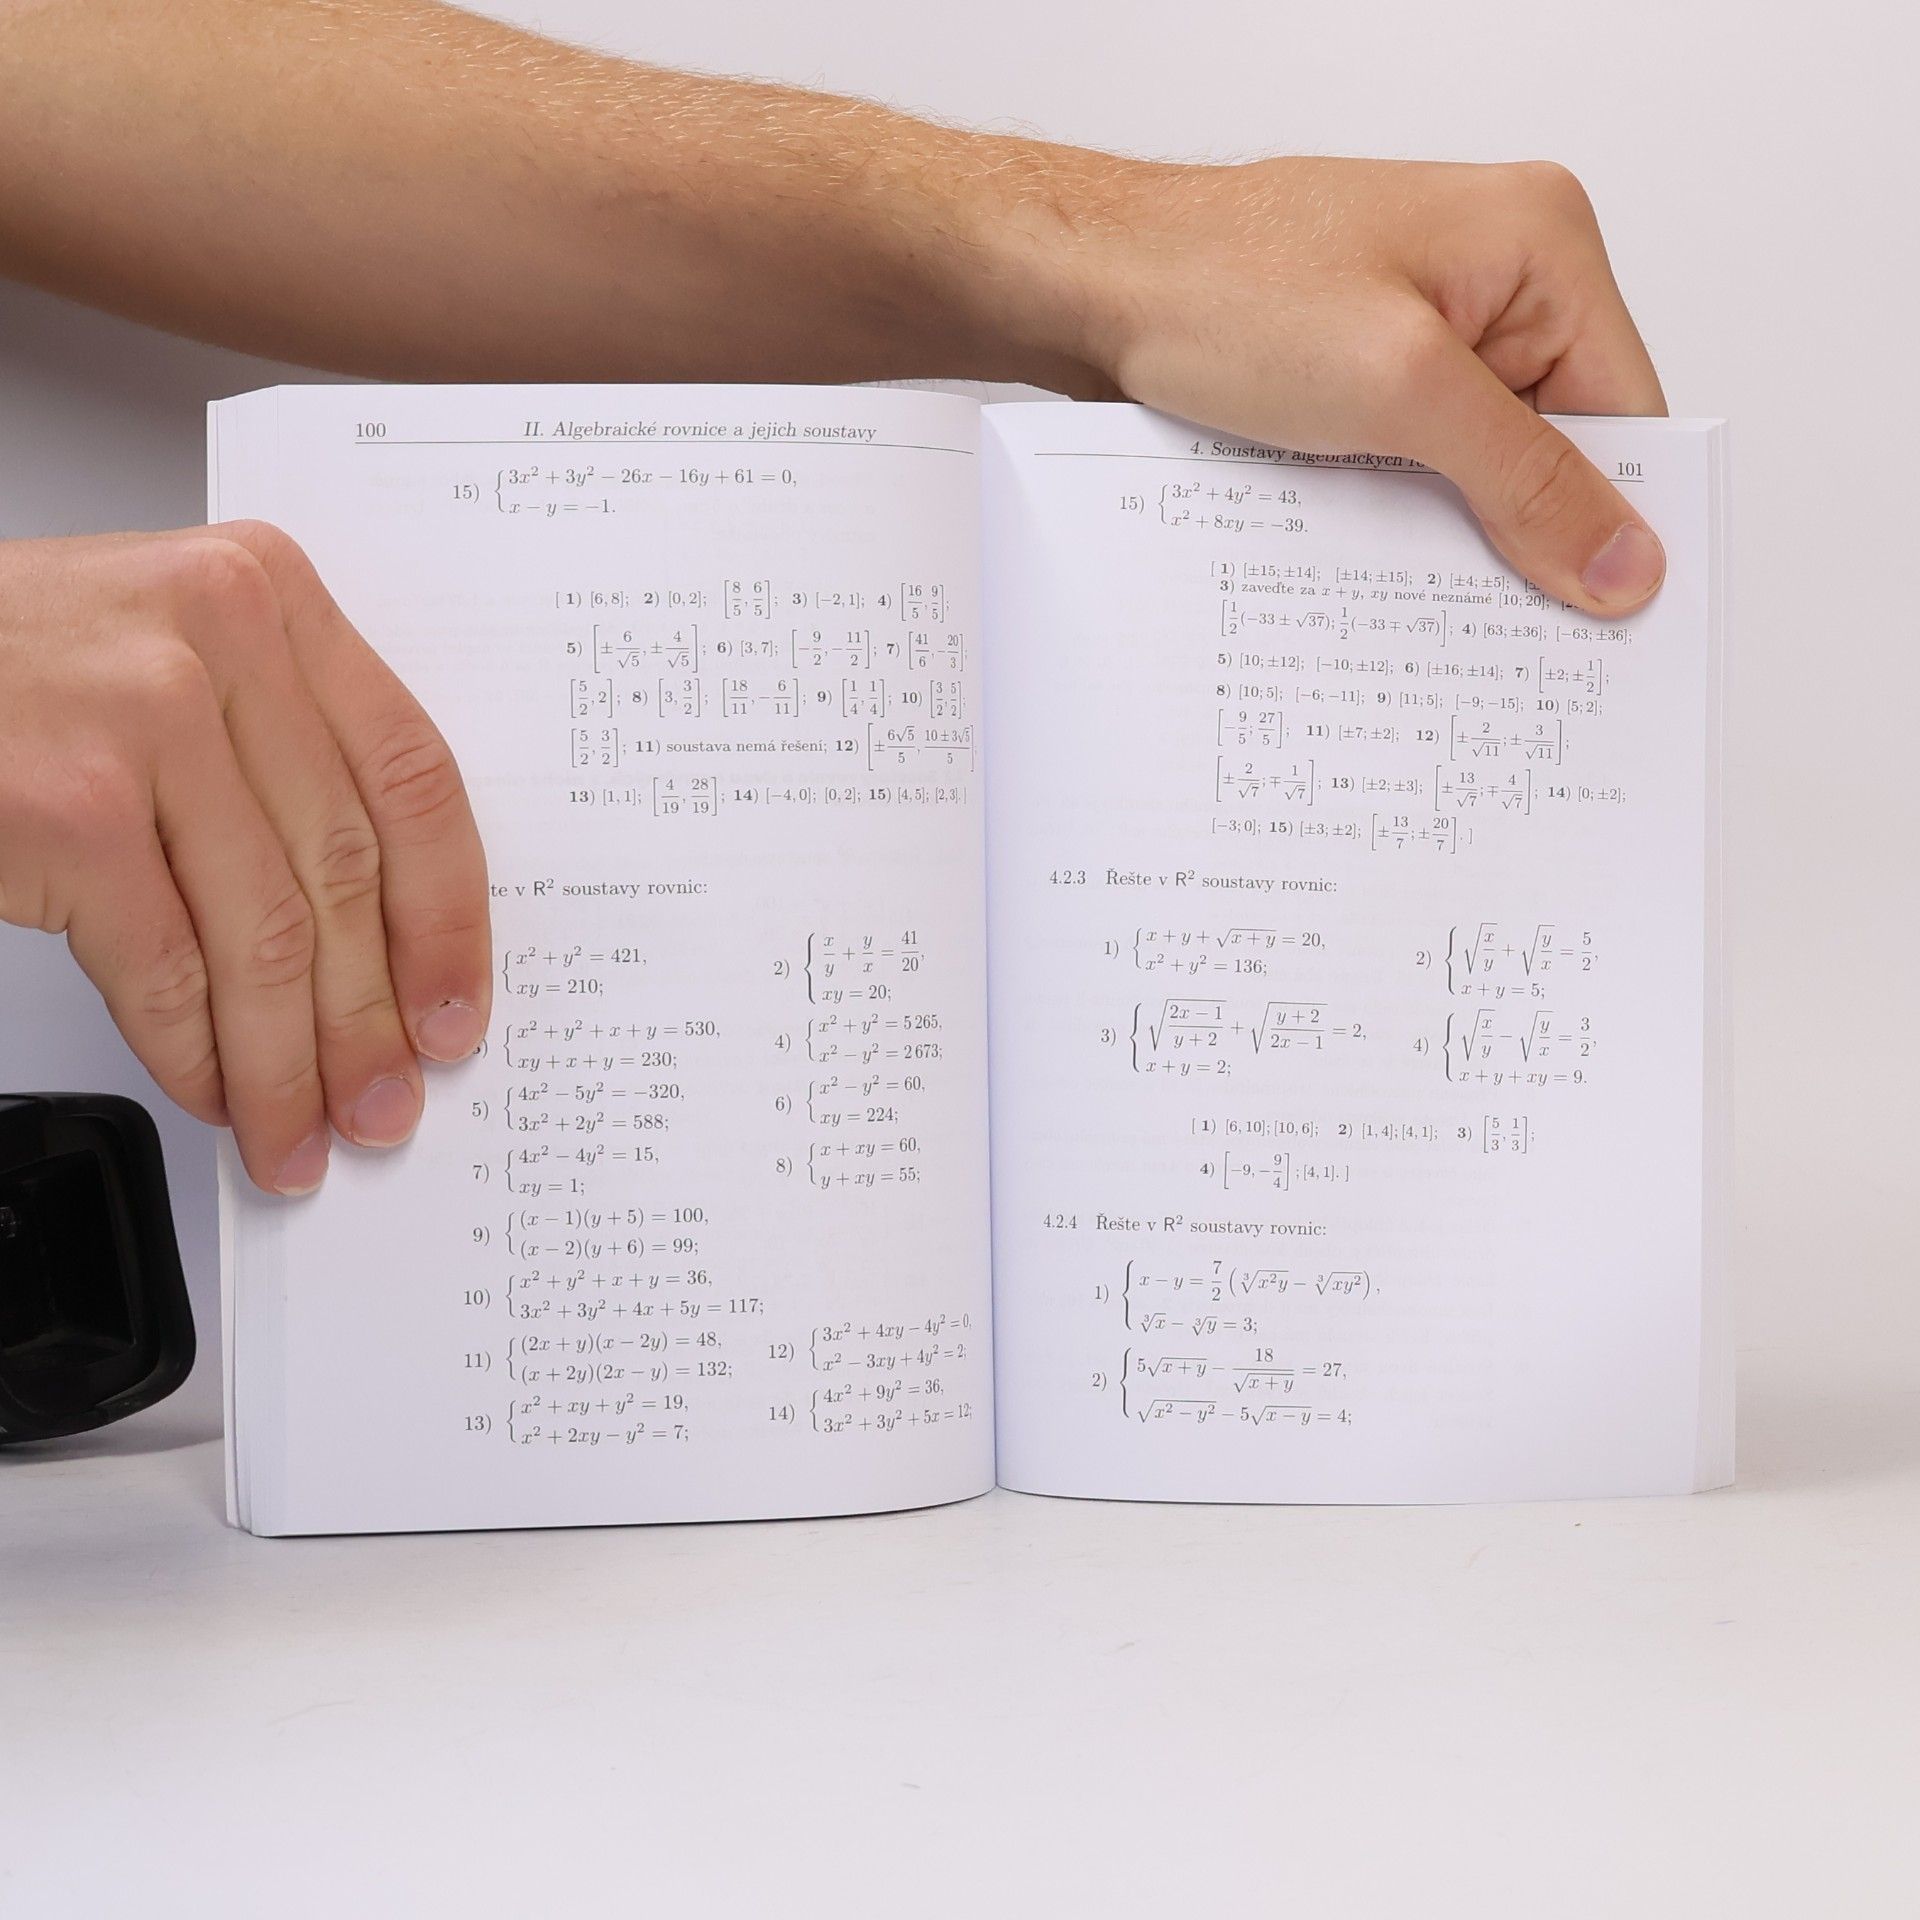 100 II. Algebraické rovnice a jejich soustavy
15) {3x² + 3y² − 26x − 16y + 61 = 0,
x − y = −1.
[ 1) [6, 8]; 2) [0, 2]; [8/5, 6/5]; 3) [−2, 1]; 4) [16/5, 9/5];
5) [±6/√5, ±4/√5]; 6) [3, 7]; [−9/2, −11/2]; 7) [41/6, −20/3];
[5/2, 2]; 8) [3, 3/2]; [18/11, −6/11]; 9) [1/4, 1/4]; 10) [3/2, 5/2];
[5/2, 3/2]; 11) soustava nemá řešení; 12) [±6√5/5, 10±3√5/5];
13) [1, 1]; [4/19, 28/19]; 14) [−4, 0]; [0, 2]; 15) [4, 5]; [2, 3]. ]
v R² soustavy rovnic:
{x² + y² = 421,
xy = 210;
2) {x/y + y/x = 41/20,
xy = 20;
{x² + y² + x + y = 530,
xy + x + y = 230;
4) {x² + y² = 5 265,
x² − y² = 2 673;
5) {4x² − 5y² = −320,
3x² + 2y² = 588;
6) {x² − y² = 60,
xy = 224;
7) {4x² − 4y² = 15,
xy = 1;
8) {x + xy = 60,
y + xy = 55;
9) {(x − 1)(y + 5) = 100,
(x − 2)(y + 6) = 99;
10) {x² + y² + x + y = 36,
3x² + 3y² + 4x + 5y = 117;
11) {(2x + y)(x − 2y) = 48,
(x + 2y)(2x − y) = 132;
12) {3x² + 4xy − 4y² = 0,
x² − 3xy + 4y² = 2;
13) {x² + xy + y² = 19,
x² + 2xy − y² = 7;
14) {4x² + 9y² = 36,
3x² + 3y² + 5x = 12;
4. Soustavy algebraických 101
15) {3x² + 4y² = 43,
x² + 8xy = −39.
[ 1) [±15; ±14]; [±14; ±15]; 2) [±4; ±5];
3) zaveďte za x + y, xy nové neznámé [10; 20];
[1/2(−33 ± √37); 1/2(−33 ∓ √37)]; 4) [63; ±36]; [−63; ±36];
5) [10; ±12]; [−10; ±12]; 6) [±16; ±14]; 7) [±2; ±1/2];
8) [10; 5]; [−6; −11]; 9) [11; 5]; [−9; −15]; 10) [5; 2];
[−9/5; 27/5]; 11) [±7; ±2]; 12) [±2/√11; ±3/√11];
[±2/√7; ∓1/√7]; 13) [±2; ±3]; [±13/√7; ∓4/√7]; 14) [0; ±2];
[−3; 0]; 15) [±3; ±2]; [±13/7; ±20/7]. ]
4.2.3 Řešte v R² soustavy rovnic:
1) {x + y + √(x + y) = 20,
x² + y² = 136;
2) {√(x/y) + √(y/x) = 5/2,
x + y = 5;
3) {√((2x − 1)/(y + 2)) + √((y + 2)/(2x − 1)) = 2,
x + y = 2;
4) {√(x/y) − √(y/x) = 3/2,
x + y + xy = 9.
[ 1) [6, 10]; [10, 6]; 2) [1, 4]; [4, 1]; 3) [5/3, 1/3];
4) [−9, −9/4]; [4, 1]. ]
4.2.4 Řešte v R² soustavy rovnic:
1) {x − y = 7/2 (∛(x²y) − ∛(xy²)),
∛x − ∛y = 3;
2) {5√(x + y) − 18/√(x + y) = 27,
√(x² − y²) − 5√(x − y) = 4;